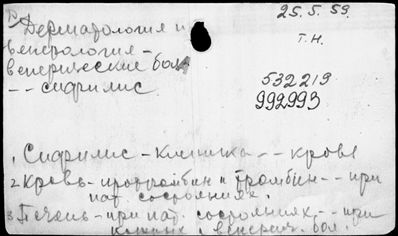 Дерматология и
венерология -
венерические бол.
-- сифилис
25.5.59.
Т.Н.
532219
992993
1. Сифилис - клиника -- кровь
2. Кровь - протромбин и тромбин -- при
пат. состояниях.
3. Печень - при пат. состояниях -- при
кожных и венерич. бол.